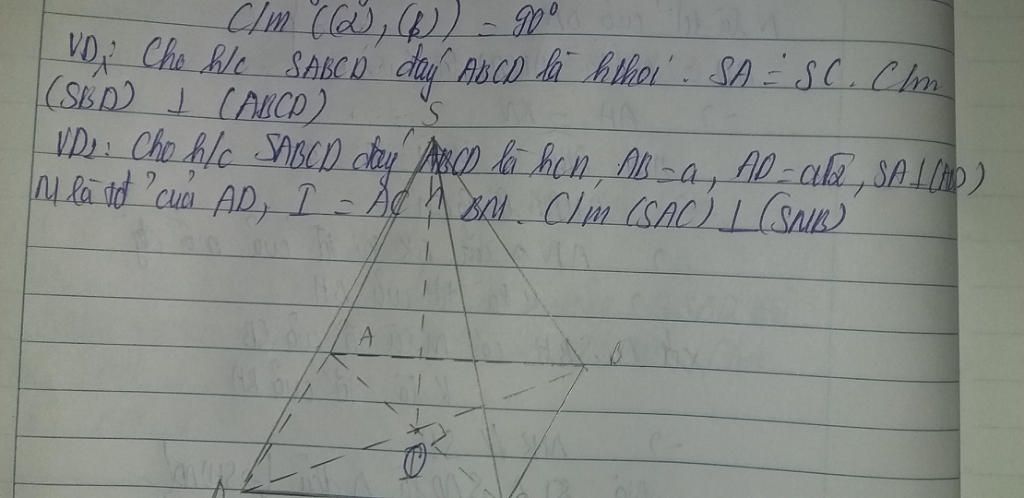 C/m ((α), (β)) = 90°
VD1: Cho h/c SABCD đáy ABCD là hthoi. SA = SC. C/m
(SBD) ⊥ (ABCD)
S
VD2: Cho h/c SABCD đáy ABCD là hcn, AB = a, AD = a√2, SA ⊥
M là tđ của AD, I = AC ∩ BM. C/m (SAC) ⊥ (SMB)
A
B